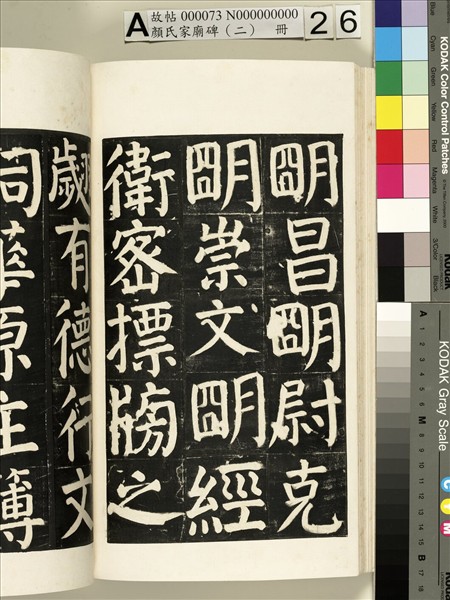 A 故帖 000073 N000000000 26
顏氏家廟碑（二） 冊
明昌明尉克
明崇文明經
衛密摽牓之
歲有德行文
華原主簿
KODAK Color Control Patches
Blue Cyan Green Yellow Red Magenta White 3/Color Black
Kodak
KODAK Gray Scale
A 1 2 3 4 5 6 M 8 9 10 11 12 13 14 15 B 17 18
C Y M